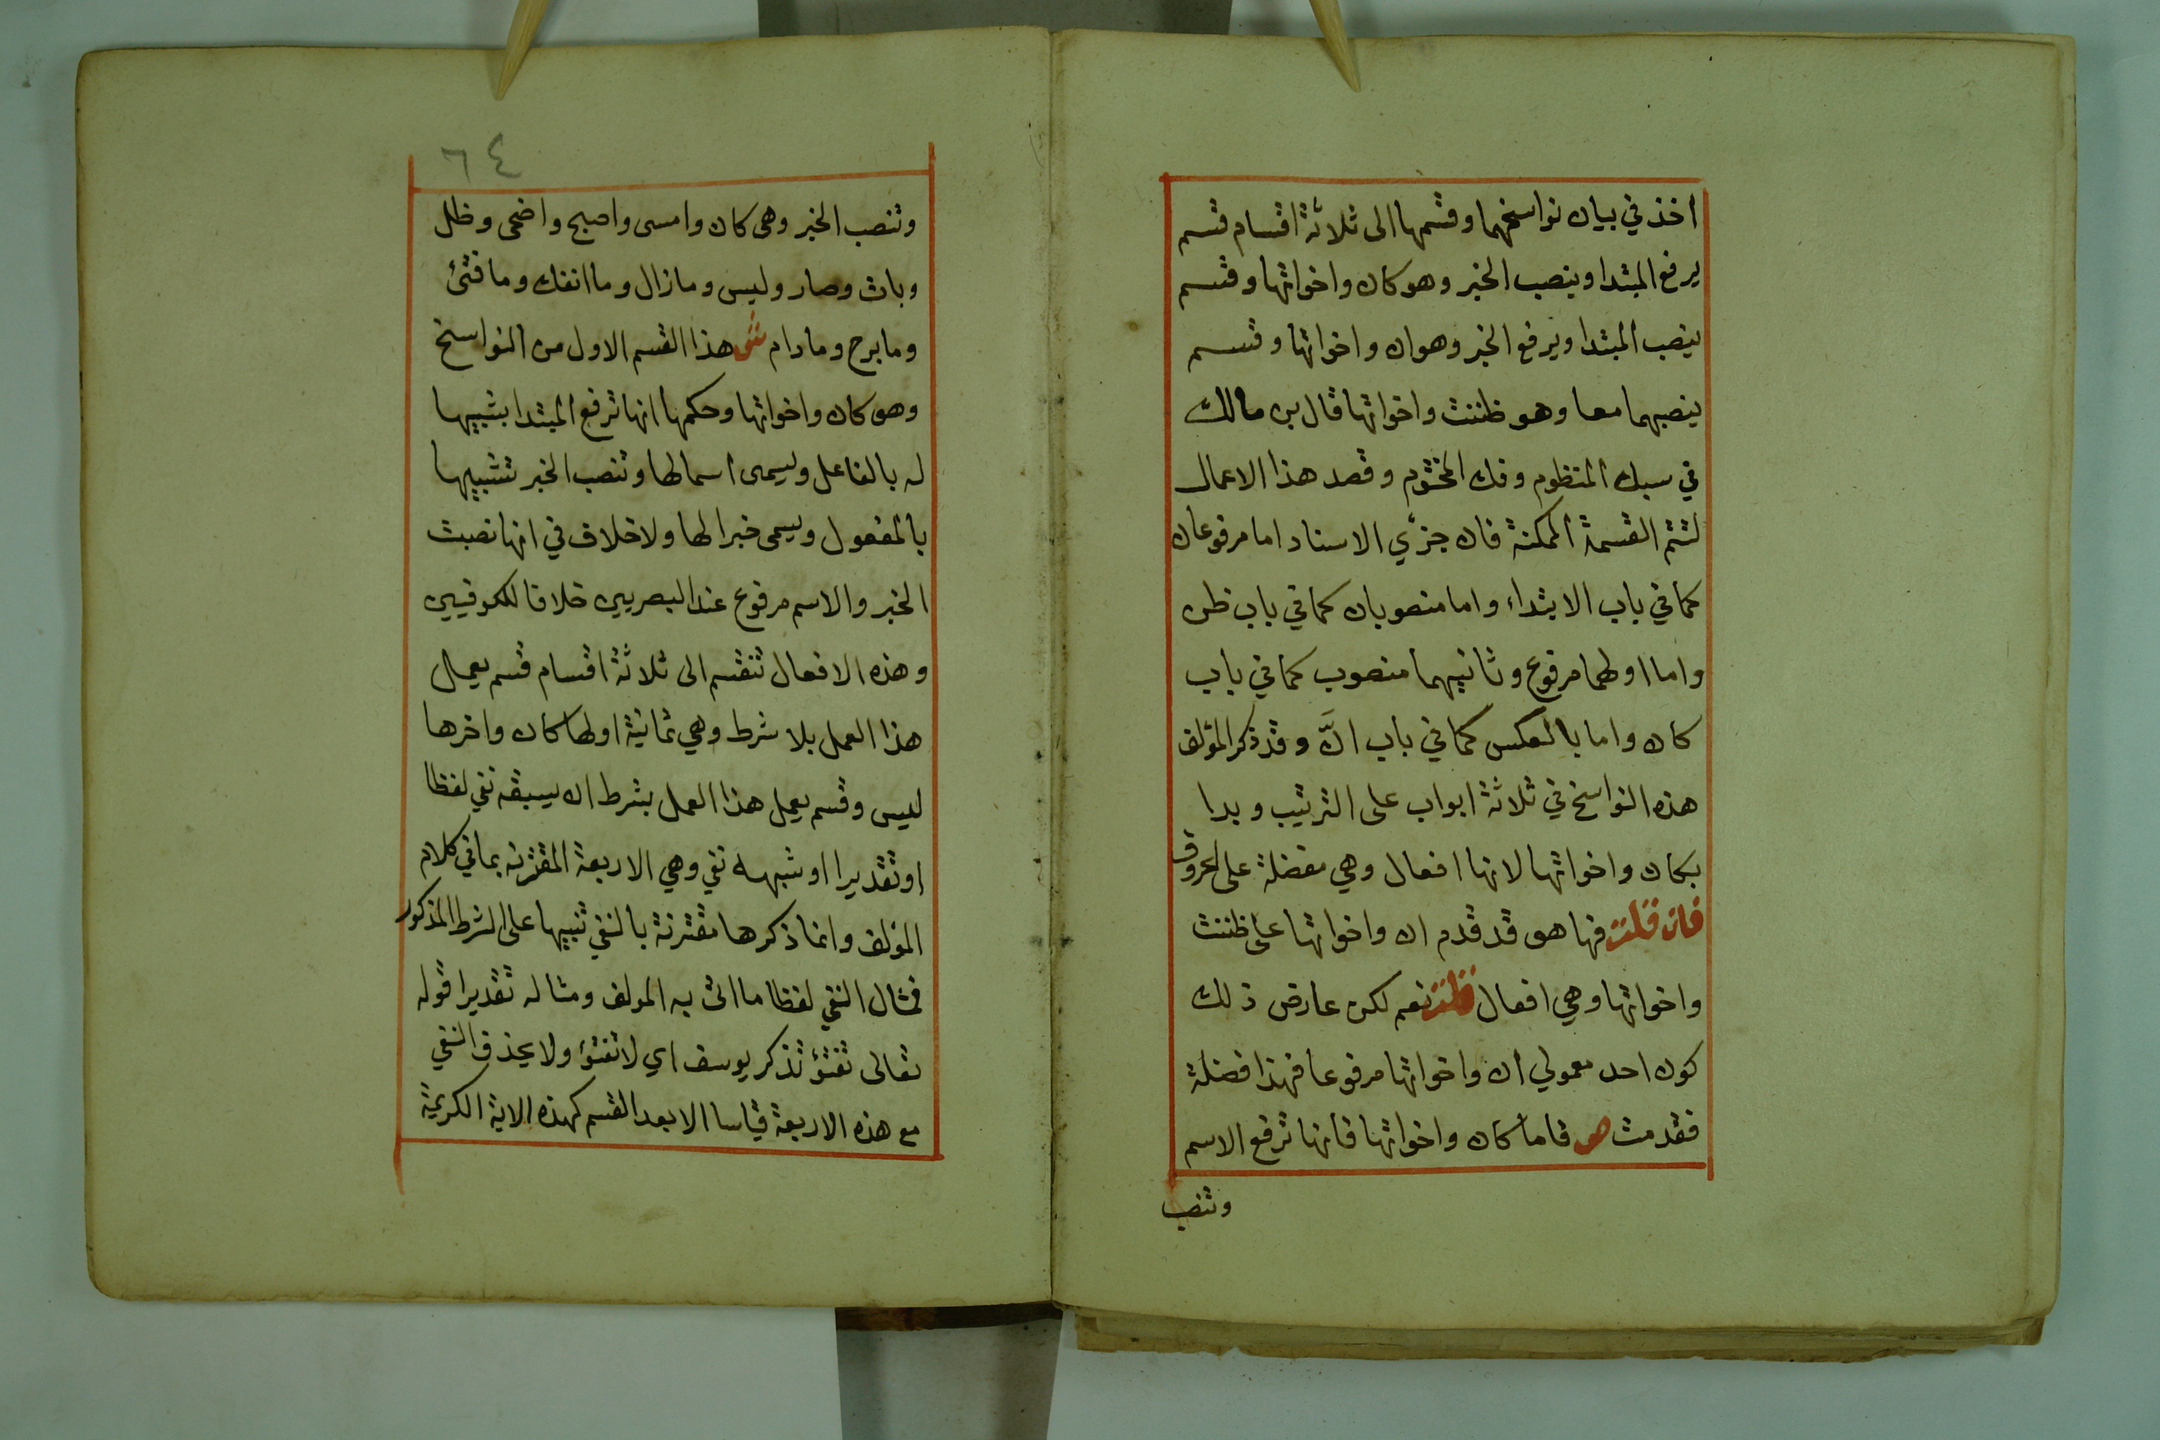 اخذ في بيان نواسخهما وقسمها الى ثلاثة اقسام قسم
يرفع المبتدا وينصب الخبر وهو كان واخواتها وقسم
ينصب المبتدا ويرفع الخبر وهو ان واخواتها وقسم
ينصبهما معا وهو ظننت واخواتها قال بن مالك
في سبك المنظوم وفك المختوم وقصد هذا الاعمال
لتتم القسمة الممكنة فان جزئي الاسناد اما مرفوعان
كما في باب الابتداء واما منصوبان كما في باب ظن
واما اولهما مرفوع وثانيهما منصوب كما في باب
كان واما بالعكس كما في باب انَّ وقد ذكر المؤلف
هذه النواسخ في ثلاثة ابواب على الترتيب وبدا
بكان واخواتها لانها افعال وهي مفضلة على الحروف
فان قلت فها هو قد قدم ان واخواتها على ظننت
واخواتها وهي افعال قلت نعم لكن عارض ذلك
كون احد معمولي ان واخواتها مرفوعا فهذا فضلة
فقدمت ص فاما كان واخواتها فانها ترفع الاسم
وتنصب
٦٤
وتنصب الخبر وهى كان وامسى واصبح واضحى وظل
وبات وصار وليس ومازال وما انفك وما فتئ
ومابرح ومادام ش هذا القسم الاول من النواسخ
وهو كان واخواتها وحكمها انها ترفع المبتدا بشبيها
له بالفاعل وليسمى اسما لها وتنصب الخبر تشبيها
بالمفعول ويسمى خبرا لها ولا خلاف في انها نصبت
الخبر والاسم مرفوع عند البصريين خلافا للكوفيين
وهذه الافعال تنقسم الى ثلاثة اقسام قسم يعمل
هذا العمل بلا شرط وهي ثمانية اولها كان واخرها
ليس وقسم يعمل هذا العمل بشرط ان يسبقه نفي لفظا
او تقديرا او شبهه نفي وهي الاربعة المقترنه بما في كلام
المؤلف وانما ذكرها مقترنة بالنفي تنبيها على الشرط المذكور
فمثال النفي لفظا ما اتى به المولف ومثاله تقديرا قوله
تعالى تفتؤ تذكر يوسف اي لا تفتؤ ولا يحذف النفي
مع هذه الاربعة قياسا الا بعد القسم كهذه الاية الكريمة